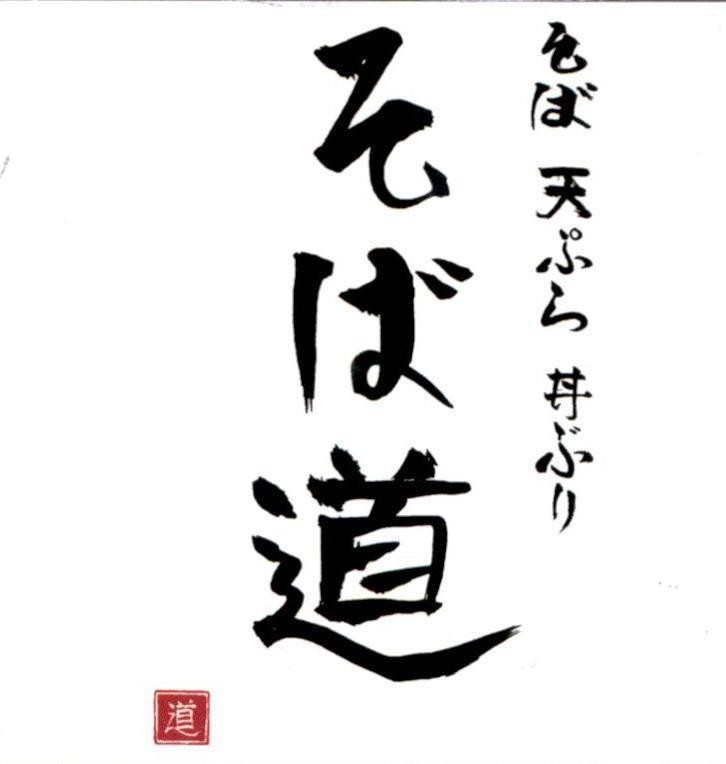 そば 天ぷら 丼ぶり
そば道
道